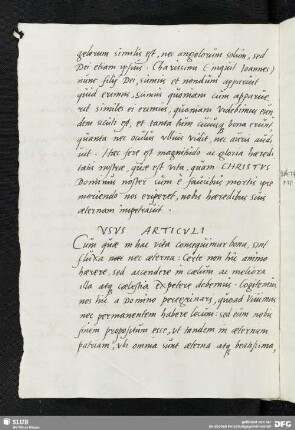 gelorum similis est, nec angelorum solum, sed
Dei etiam ipsius. Charissimi (inquit Ioannes)
nunc filij Dei sumus et nondum apparuit
quid erimus. Scimus quoniam cum apparue-
rit similes ei erimus, quoniam videbimus eun-
dem sicuti est, et tanta tum cuiusq; bona erunt
quanta nec oculus ullius vidit, nec auris audi-
uit. Haec fere est magnitudo ac gloria haeredi-
tatis nostrae, quae est vita, quam CHRISTVS
Dominus noster cum e faucibus mortis ipse
moriendo nos eriperet, nobis haeredibus suis
aeternam impetrauit.
VSVS ARTICVLI
Cum quae in hac vita consequimur bona, sint
fluxa nec aeterna: Certe non hic animo
haerere, sed ascendere in coelum ac meliora
illa atq; coelestia expetere debemus. Cogitemus
nos hic a Domino peregrinari, quoad viuimus
nec permanentem habere locum: sed eum nobis
finem propositum esse, ut tandem in aeternam
patriam, ubi omnia sunt aeterna atq; beatissima,
SLUB
DFG